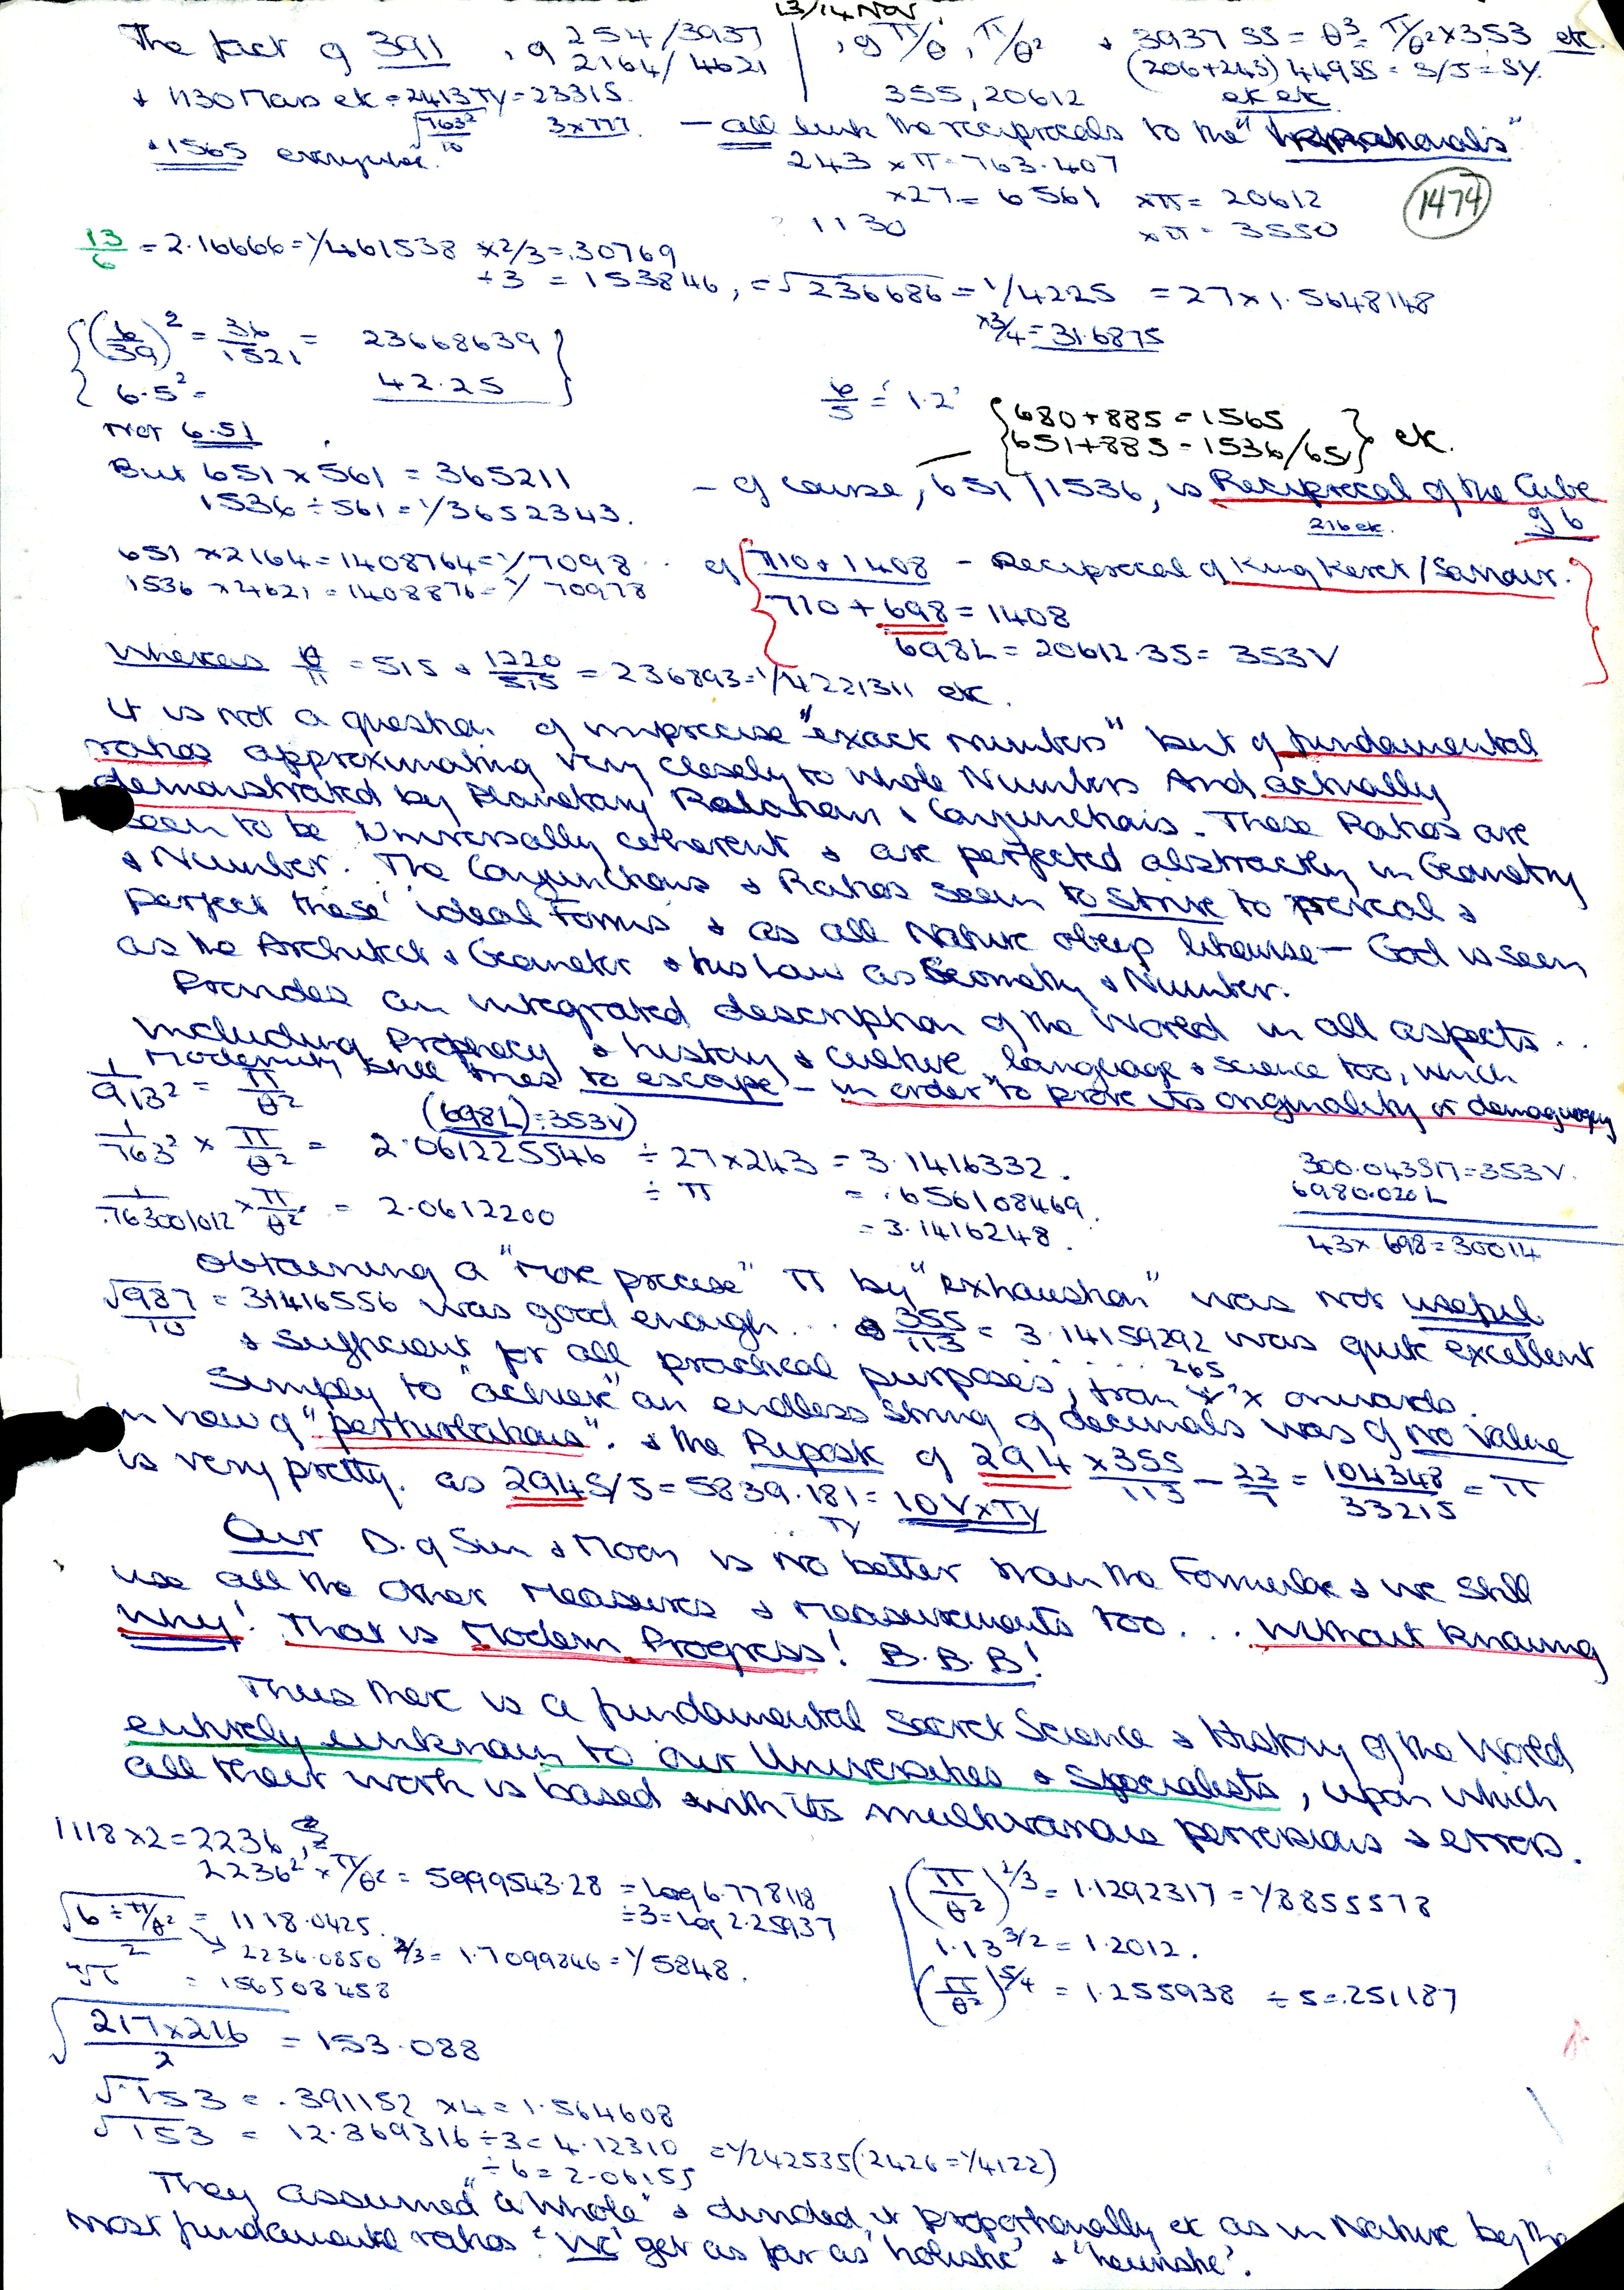 13/14 Nov.
The fact of 391 , of 254/3937 | , of π/θ, π/θ² + 3937 SS = θ³ = π/θ² x 353 etc.
2164/4621 (206+243) 449 SS = S/J = SY.
+ 1130 Mars etc = 2413 TY = 2331 S. 355, 20612 etc etc
√763²/10 3x777 — all link the reciprocals to the "
+ 1565 everywhere. 243 x π = 763.407
x27 = 6561 xπ = 20612
1130 xπ = 3550
1474
13/6 = 2.16666 = 1/461538 x 2/3 = .30769
÷3 = 153846, = √236686 = 1/4225 = 27 x 1.5648148
x3/4 = 31.6875
(6/39)² = 36/1521 = 23668639
6.5² = 42.25
6/5 = '1.2'
680 + 885 = 1565
651 + 885 = 1536/651 etc.
Not 6.51
But 651 x 561 = 365211
1536 ÷ 561 = 1/3652343.
— of course, 651/1536, is Reciprocal of the Cube of 6
216 etc.
651 x 2164 = 1408764 = 1/7098..
1536 x 4621 = 1408876 = 1/70978
of 710 + 1408 — Reciprocal of King Keret/
710 + 698 = 1408
698L = 20612.35 = 353V
Whereas θ/π = 515 + 1220/515 = 236893 = 1/4221311 etc.
It is not a question of imprecise "exact numbers" but of fundamental
ratios approximating very closely to Whole Numbers And actually
demonstrated by Planetary Relations & Conjunctions. These Ratios are
seen to be Universally coherent & are perfected abstractly in Geometry
& Number. The Conjunctions & Ratios seem to strive to reveal &
perfect these 'ideal Forms' & as all Nature obeys likewise — God is seen
as the Architect & Geometer & his Law as Geometry & Number.
Provides an integrated description of the World in all aspects...
including Prophecy & history & culture, language & science too, which
Modernity still tries to escape — in order to prove its originality or demagoguery
1/913² = π/θ²
(698L) = 353V)
1/763² x π/θ² = 2.061225546 ÷ 27 x 243 = 3.1416332.
÷ π = .656108469.
1/.763001012 x π/θ² = 2.0612200 = 3.1416248.
300.043517 = 353V.
6980.020 L
43 x 698 = 30014
Obtaining a "More precise" π by "Exhaustion" was not useful
√987/10 = 31416556 was good enough... & 355/113 = 3.14159292 was quite excellent
& sufficient for all practical purposes, from onwards.
265
Simply to "achieve" an endless string of decimals was of no value
in view of "perturbations". & the Riposte of 294 x 355/113 - 22/7 = 104348/33215 = π
is very pretty. as 294 S/J = 5839.181 = 10V x TY
TY
Our D. of Sun & Moon is no better than the Formulae & we still
use all the other Measures & Measurements too... Without knowing
Why! That is Modern Progress! B.B.B!
Thus there is a fundamental Secret Science & History of the World
entirely unknown to our Universities & Specialists, upon which
all their work is based with its multivarious perversions & errors.
1118 x 2 = 2236,
2236² x π/θ² = 5999543.28 = log 6.778118
÷3 = log 2.25937
√6 ÷ π/θ² / 2 = 1118.0425.
2236.0850 2/3 = 1.7099846 = 1/5848.
= 156508458
(π/θ²)^2/3 = 1.1292317 = 1/8855578
1.13^3/2 = 1.2012.
(π/θ²)^5/4 = 1.255938 ÷ 5 = .251187
√217x216/2 = 153.088
√.153 = .391152 x 4 = 1.564608
√153 = 12.369316 ÷ 3 = 4.12310 = 1/242535 (2426 = 1/4122)
÷ 6 = 2.06155
They assumed "a Whole" & divided it proportionally etc as in Nature by the
most fundamental ratios. 'We' get as far as 'holistic' & 'heuristic'.